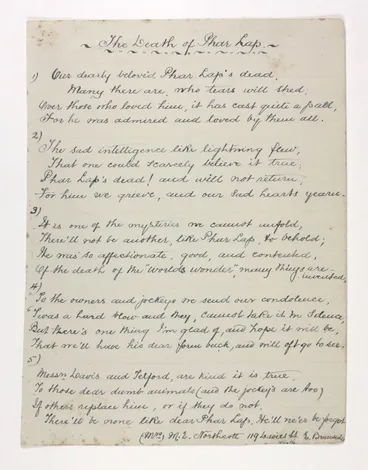 The Death of Phar Lap.
1) Our dearly beloved Phar Lap's dead.
Many there are, who tears will shed.
Over those who loved him, it has cast quite a pall,
For he was admired and loved by them all.
2)
The sad intelligence like lightning flew,
That one could scarcely believe it true,
Phar Lap's dead! and will not return,
For him we grieve, and our sad hearts yearn.
3)
It is one of the mysteries we cannot unfold,
There'll not be another, like Phar Lap, to behold;
He was so affectionate, good, and contented,
Of the death of the "world's wonder", many things are invented.
4)
To the owners and jockeys we send our condolence,
'Twas a hard blow and they, cannot take it in silence
But there's one thing I'm glad of, and hope it will be,
That we'll have his dear form back, and will oft go to see.
5)
Messrs Davis and Telford, are kind it is true,
To those dear dumb animals (and the jockey's are too)
If others replace him, or if they do not,
There'll be none like dear Phar Lap, He'll ne'er be forgot
(Mrs) M. E. Northcott 119 St E.